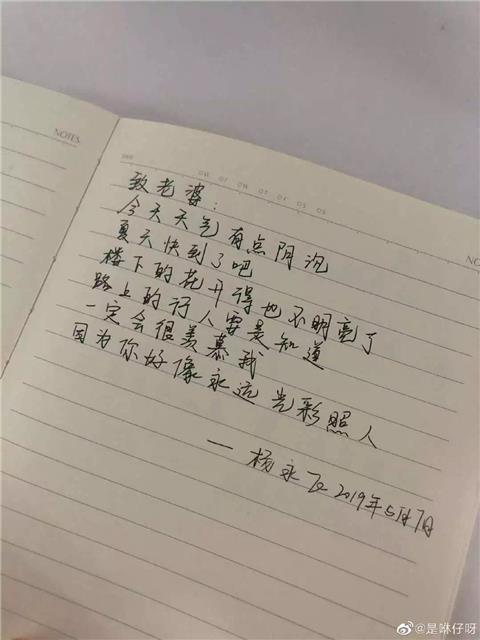 NOTES
致老婆：
今天天气有点阴沉
夏天快到了吧
楼下的花开得也不明亮了
路上的行人要是知道
一定会很羡慕我
因为你好像永远光彩照人
一杨永 2019年5月7日
@是咻仔呀